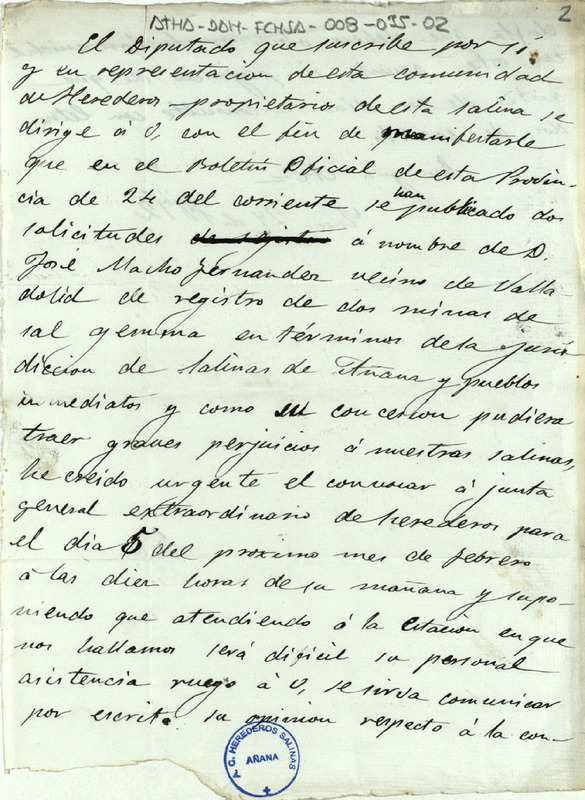 ATHA-DAM-FCHSA-008-035-02
2
El Diputado que suscribe por sí
y en representacion de esta comunidad
de Herederos-propietarios de esta salina se
dirige á V, con el fin de manifestarle
que en el Boletin Oficial de esta Provin-
cia de 24 del corriente se han publicado dos
solicitudes de registro á nombre de D.
José Macho fernandez vecino de Valla-
dolid de registro de dos minas de
sal gemma en términos de la juris
diccion de Salinas de Añana y pueblos
inmediatos y como su concesion pudiera
traer graves perjuicios á nuestras salinas,
he creido urgente el convocar á junta
general extraordinario de herederos para
el dia 5 del proximo mes de febrero
á las diez horas de su mañana y supo-
niendo que atendiendo á la estacion en que
nos hallamos será dificil su personal
asistencia ruego á V, se sirva comunicar
por escrito su opinion respecto á la con-
C. HEREDEROS SALINAS
AÑANA